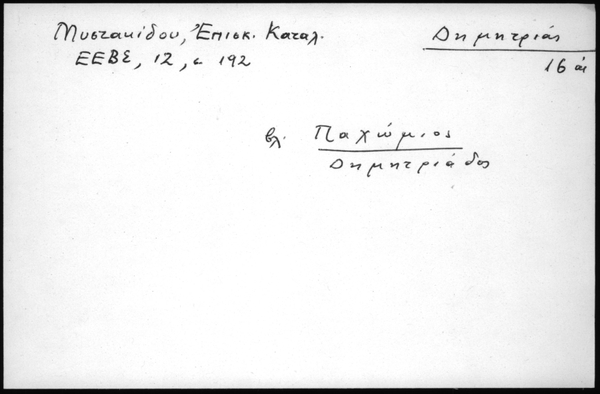 Μυστακίδου, Ἐπισκ. Καταλ.
ΕΕΒΣ, 12, σ 192
Δημητριάς
16 αἰ
βλ. Παχώμιος
Δημητριάδος